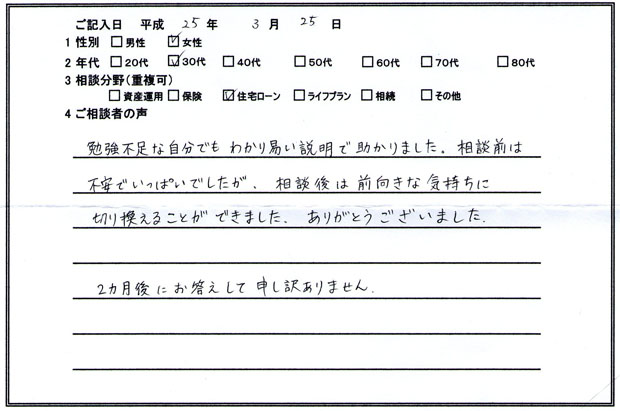 ご記入日 平成 25 年 3 月 25 日
1 性別 □男性 ☑女性
2 年代 □20代 ☑30代 □40代 □50代 □60代 □70代 □80代
3 相談分野(重複可)
□資産運用 □保険 ☑住宅ローン □ライフプラン □相続 □その他
4 ご相談者の声
勉強不足な自分でも わかり易い説明で助かりました。相談前は
不安でいっぱいでしたが、相談後は前向きな気持ちに
切り換えることができました。ありがとうございました。
2カ月後にお答えして申し訳ありません。